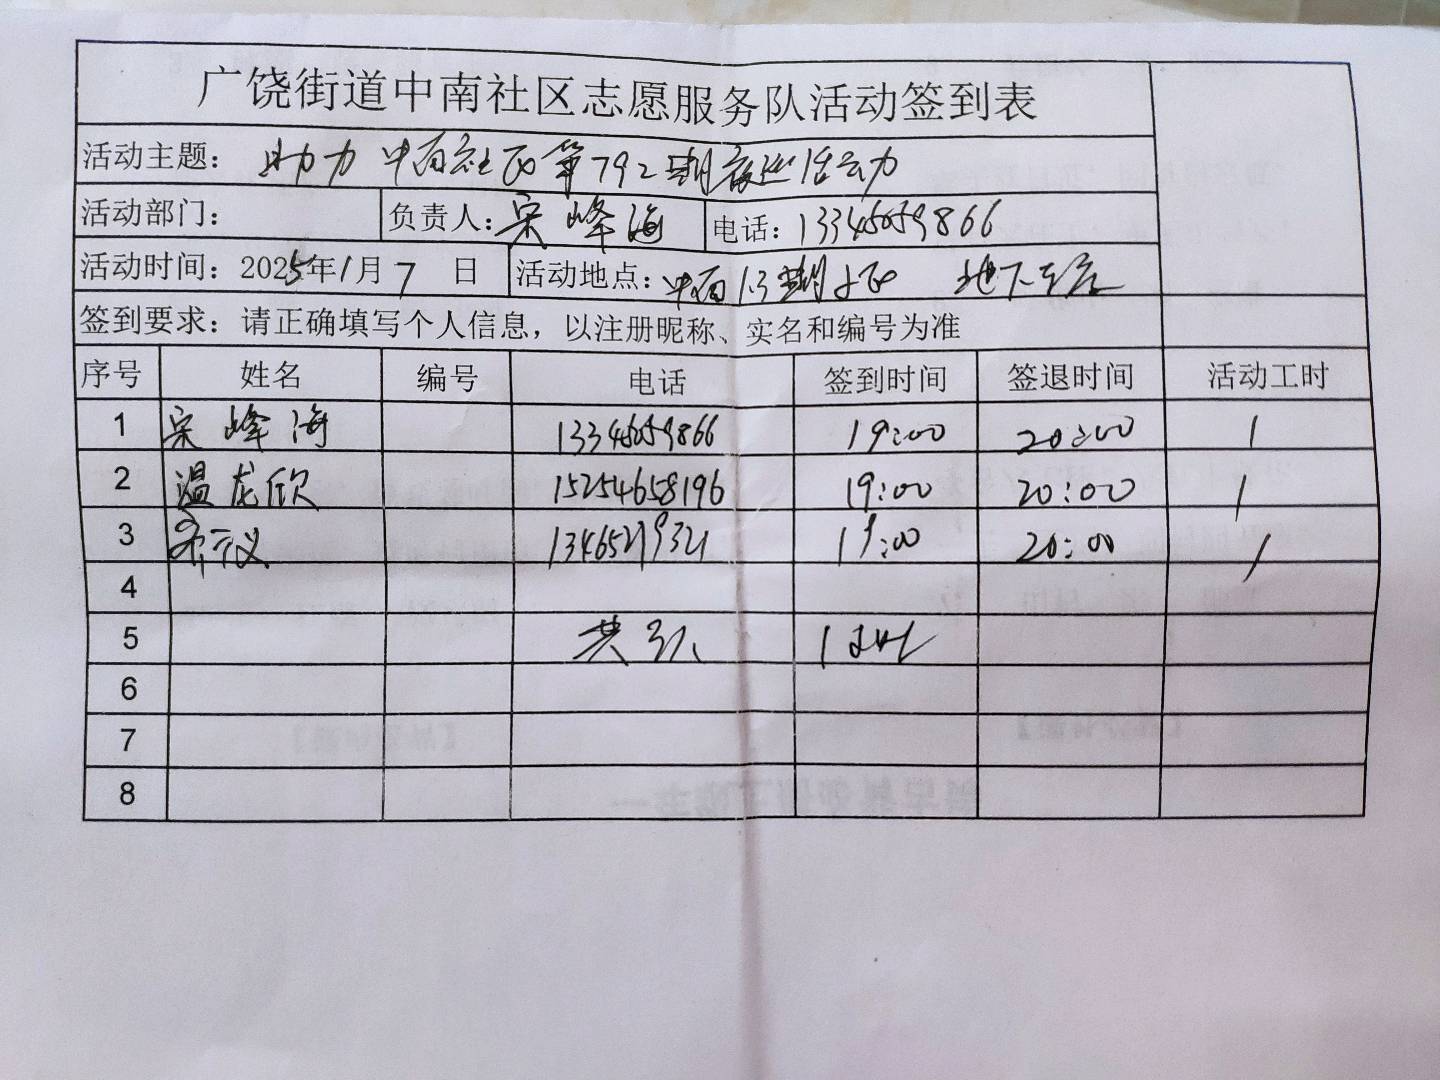 广饶街道中南社区志愿服务队活动签到表
活动主题： 助力中南社区第792期夜巡活动
活动部门： 负责人：宋峰海 电话：13345059866
活动时间：2025年1月7日 活动地点：中南1.3期 地下车库
签到要求：请正确填写个人信息，以注册昵称、实名和编号为准
序号 姓名 编号 电话 签到时间 签退时间 活动工时
1 宋峰海 13345059866 19:00 20:00 1
2 温龙欣 15254658196 19:00 20:00 1
3 19:00 20:00 1
4
5 共3人
6
7
8